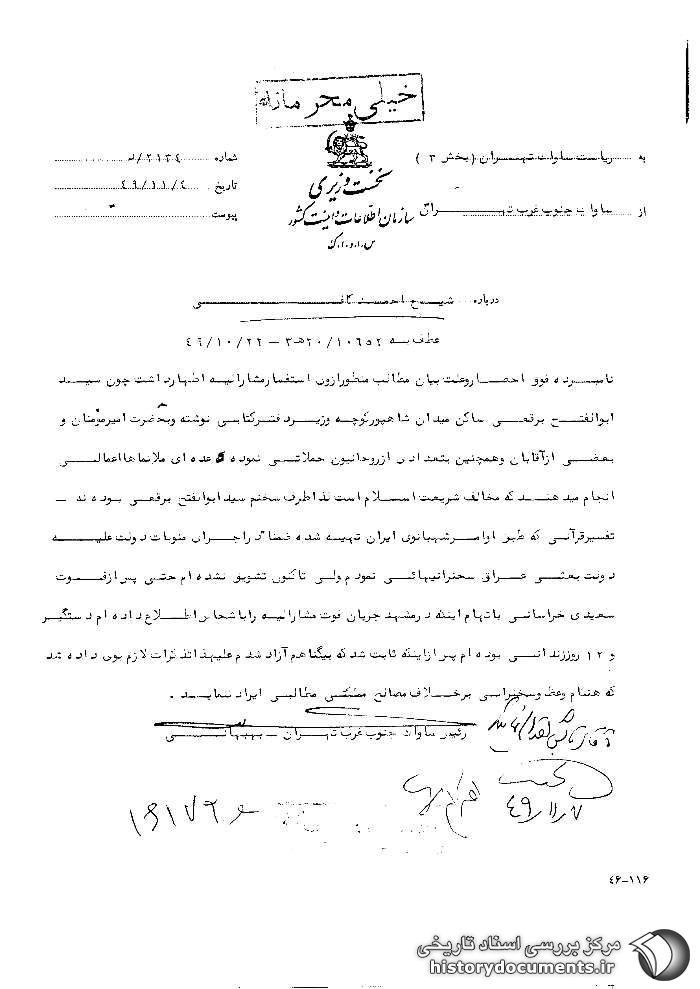 خیلی محرمانه
به ریاست ساواک تهران (بخش ۳)
شماره ۲۱۳٤/
از ساواک جنوب غرب تهران
تاریخ ٤۹/۱۱/٤
پیوست
نخست وزیری
سازمان اطلاعات و امنیت کشور
س.ا.و.ا.ک
درباره شیخ احمد کافی
عطف به ۲۰/۱۰٦۵۲ هـ ۳ – ٤۹/۱۰/۲۲
نامبرده فوق احضار و علت بیان مطالب منظور از وی استفسار مشارالیه اظهار داشت چون سید
ابوالفتح برقعی ساکن میدان شاهپور کوچه وزیر دفتر کتابی نوشته و بحضرت امیرمومنان و
بعضی از آقایان و همچنین بتعدادی از روحانیون حملاتی نموده که عده ای ملانماها اعمالی
انجام میدهند که مخالف شریعت اسلام است لذا طرف سخنم سید ابوالفتح برقعی بوده ند –
تفسیر قرآنی که طبق اوامر شهبانوی ایران تهیه شده ضمنا" در اجرای منویات دولت علیه
دولت بعثی عراق سخنرانیهائی نمودم ولی تاکنون تشویق نشده ام حتی پس از فوت
سعیدی خراسانی باتهام اینکه در مشهد جریان فوت مشارالیه را باشخاص اطلاع داده ام دستگیر
و ۱۲ روز زندانی بوده ام پس از اینکه ثابت شد که بیگناهم آزاد شدم علیهذا تذکرات لازم بوی داده شد
که هنگام وعظ و سخنرانی برخلاف مصالح مطالبی ایراد ننماید .
رئیس ساواک جنوب غرب تهران – بهبهانی
٤۹/۱۱/۷
٤۶–۱۱۶
مرکز بررسی اسناد تاریخی
historydocuments.ir